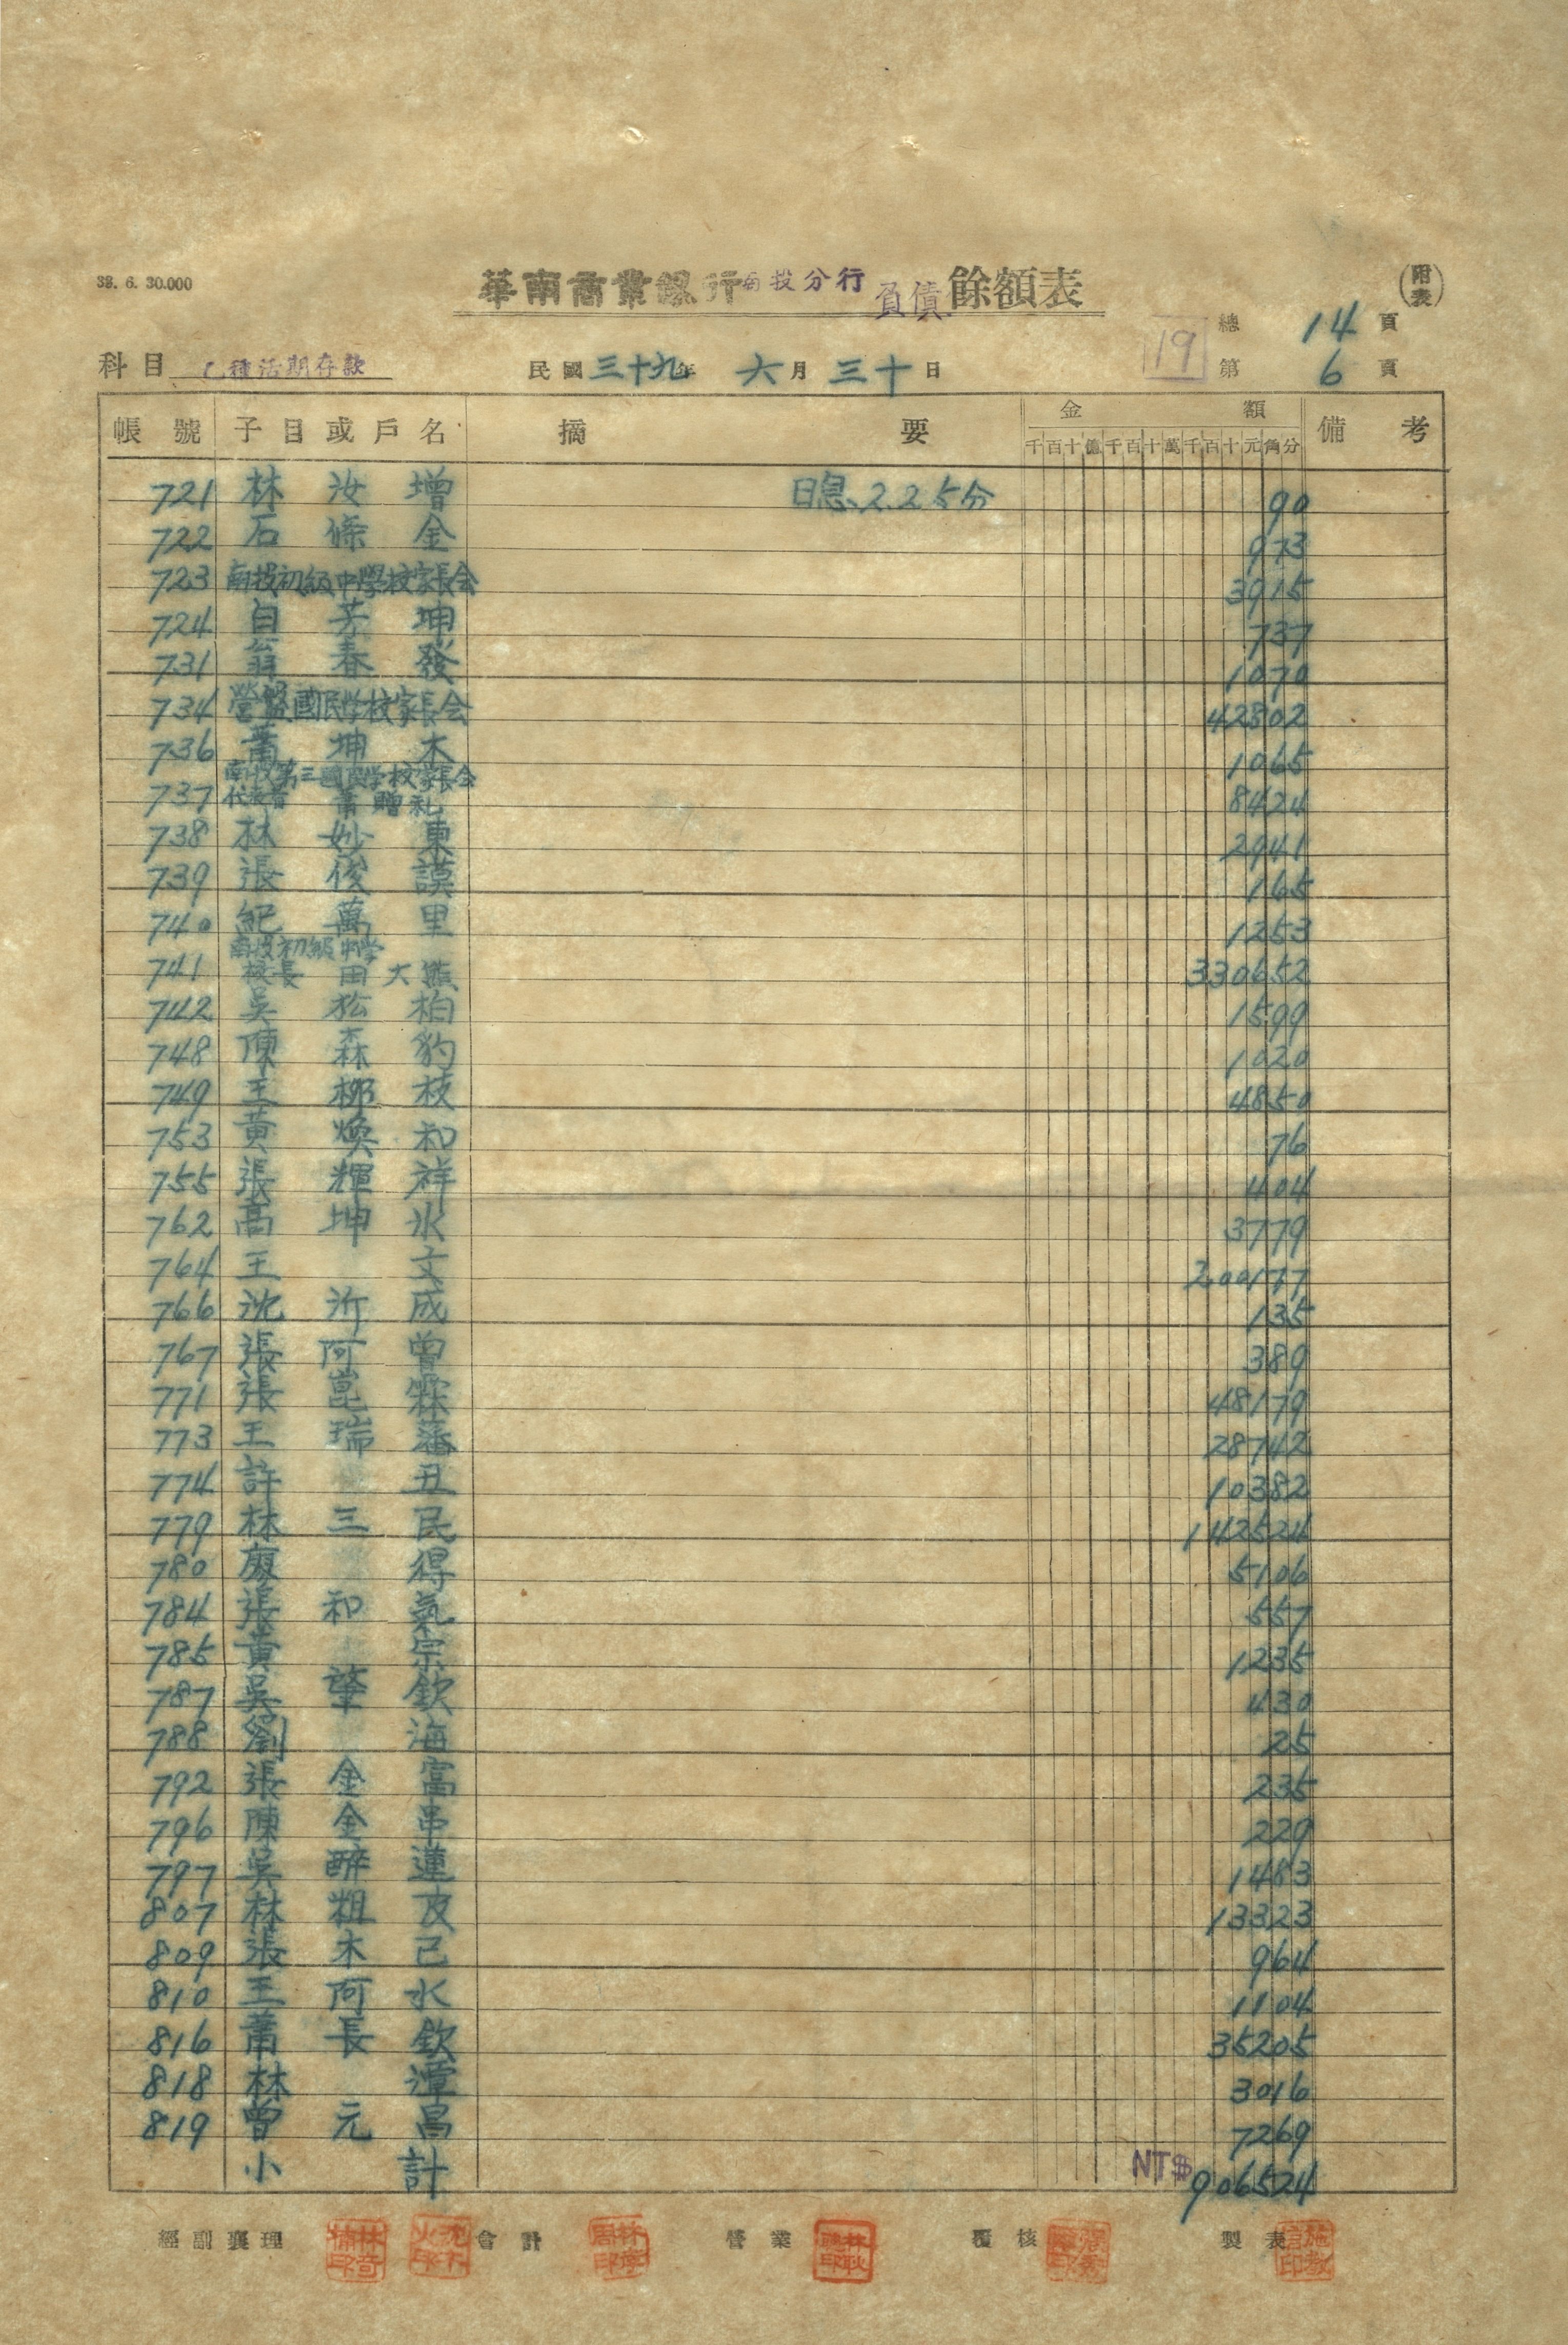 38. 6. 30.000
華南商業銀行南投分行負債餘額表
(附表)
19 總 14 頁
科目 乙種活期存款 民國三十九年 六月三十日 第 6 頁
帳號 子目或戶名 摘要 金額 備考
千百十億千百十萬千百十元角分
721 林汝增 日息2.25分 90
722 石條金 973
723 南投初級中學校家長会 3915
724 白芳坤 737
731 翁春發 1070
734 營盤國民学校家長会 42802
736 蕭坤木 1065
南投第三國民学校家長会
737 代表者 蕭贈礼 8424
738 林妙東 2941
739 張俊謨 165
740 紀萬里 1253
南投初級中学
741 校長 田大熊 330652
742 吳松柏 1599
748 陳森豹 1020
749 王梛枝 4850
753 黃煥和 76
755 張輝祥 404
762 高坤水 3779
764 王文 200177
766 沈沂成 135
767 張阿曾 389
771 張崑霖 48179
773 王瑞藩 28742
774 許丑 10382
779 林三民 142524
780 廖得 5106
784 張和氣 557
785 黃宗 1235
787 吳肇欽 430
788 劉海 25
792 張金富 235
796 陳金串 229
797 吳醉蓮 1483
807 林粗皮 13323
809 張木己 964
810 王阿水 1104
816 蕭長欽 35205
818 林潭 3016
819 曾元昌 7269
小計 NT$906524
經副襄理 會計 營業 覆核 製表